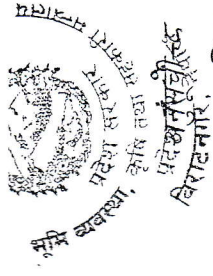 प्रदेश सरकार
भूमि व्यवस्था, कृषि तथा सहकारी मन्त्रालय
प्रदेश
विराटनगर,